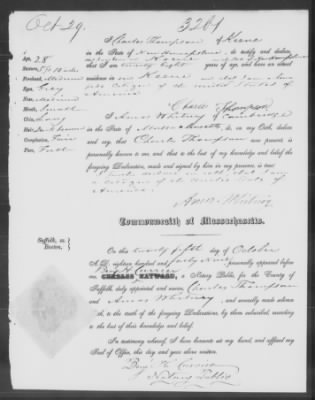 Oct 29.
3261
I Charles Thompson of Keene
in the State of New Hampshire, do testify and declare,
Age, 28
that I am twenty eight years of age, and have abode
Stature,
Forehead, Medium
residence in Keene and that I am a
Eyes, Gray
Citizen of the United States of
Nose,
America
Mouth, Small
Charles Thompson
Chin, Long
I Amos Whitney of Cambridge
Hair, Dark brown
in the State of Massachusetts do, on Oath, declare
Complexion, Fair
and say, that Charles Thompson now present, is
Face, Full
personally known to me, and that to the best of my knowledge and belief the
foregoing Declarations, made and signed by him in my presence, is true:
a citizen of the United States of
America.
Amos Whitney
Commonwealth of Massachusetts.
Suffolk, ss.
Boston,
On this twenty fifth day of October
A.D. eighteen hundred and forty nine personally appeared before
me, CHARLES HAYWARD, a Notary Public, for the County of
Benj. H. Currier
Suffolk, duly appointed and sworn, Charles Thompson
and Amos Whitney, and severally made solemn
Oath to the truth of the foregoing Declarations, by them subscribed, according
to the best of their knowledge and belief.
In testimony whereof, I have hereunto set my hand, and affixed my
Seal of Office, this day and year above written.
Benj. H. Currier
Notary Public